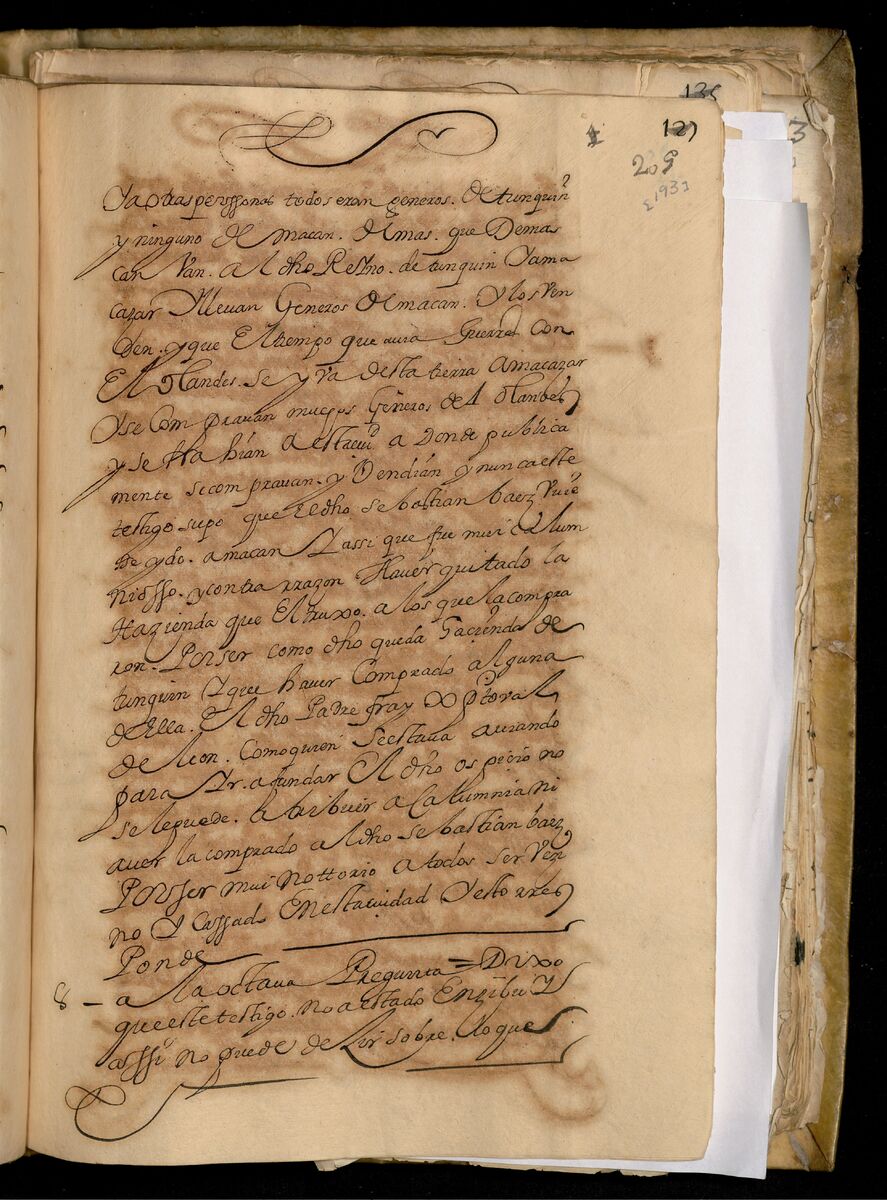 135
127
209
[193]
Ya otras perssonas todos eran generos. de tunquin
y ninguno de macan. demas. que Demas
can Van. a el dho Reyno. de tunquin Yama
cazar Y lleuan Generos de macan. Y los Ven
den. y que El tiempo que auia Guerra con
El olandes. se yva desta tierra Amacazar
Y se Compravan muchos Generos del olandes
y se trahian a esta ciud a Donde publica
mente se compravan. y Vendian y nunca este
testigo supo que El dho sebastian baez
ydo. amacan Y assi que fue mui Calum
niosso. y contra rrazon Hauer quitado la
Hazienda que El truxo. a los que la compra
ron. Por ser como dho queda hacienda de
tunquin Y que hauer Comprado alguna
de Ella. El dho Padre fray xptoval
de leon. Como quien se estaua auiando
para Yr. a fundar El dho ospicio no
se le puede. Atribuir a Calumnia ni
auer la comprado a El dho sebastian baez
Por ser mui nottorio a todos ser Vezi
no Y Cassado En esta ciudad Y esto rres
Ponde
8 - a la octaua Pregunta = Dixo
que este testigo. no a estado En
assi no puede desir sobre. lo que